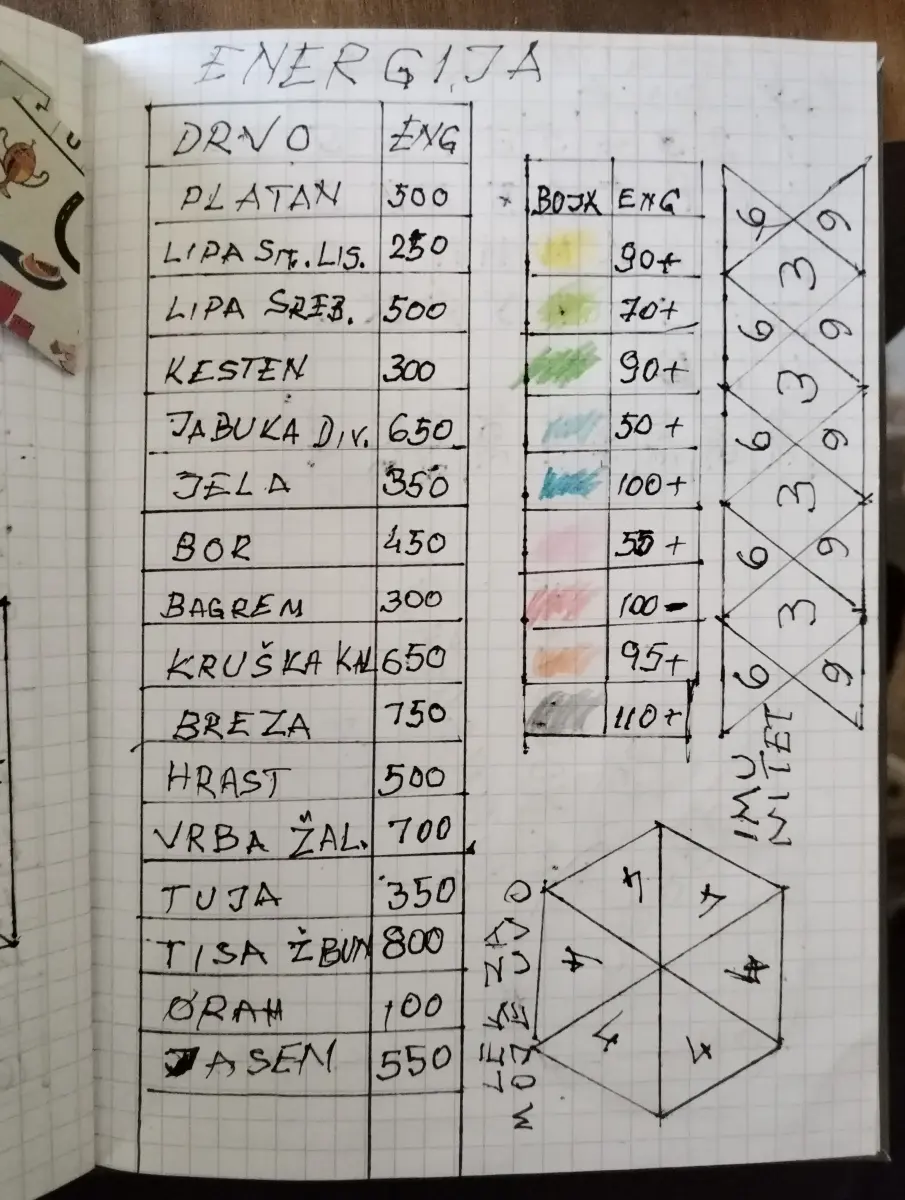 ENERGIJA
DRVO ENG
PLATAN 500
LIPA SIT. LIS. 250
LIPA SREB. 500
KESTEN 300
JABUKA DIV. 650
JELA 350
BOR 450
BAGREM 300
KRUŠKA KAL 650
BREZA 750
HRAST 500
VRBA ŽAL. 700
TUJA 350
TISA ŽBUN 800
ORAH 100
JASEN 550
BOJA ENG
90+
70+
90+
50+
100+
55+
100-
95+
110+
6 9
3
6 9
3
6 9
3
6 9
3
6 9
IMU
NITET
4 4
4 4
4 4
LEK ZA
MOZE UVO